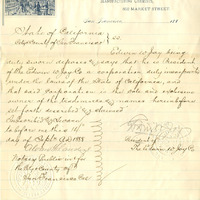 MANUFACTURING CHEMIST,
MARKET STREET
San Francisco, 188
State of California
City & County of San Francisco } SS.
Edwin W. Joy being
duly sworn deposes & says that he is President
of the Edwin W. Joy Co a corporation duly incorporated
under the laws of the State of California, and
that said Corporation is the sole and exclusive
owner of the trademark & names hereinbefore
set forth described & claimed
Subscribed & Sworn
to before me this
of Sept A.D. 1888
Notary Public in & for
the City & County of
San Francisco Cal
President of
The Edwin W Joy Co